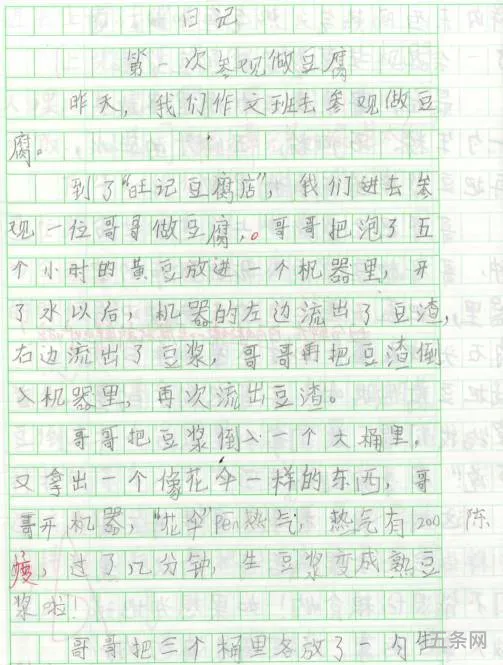 日记
第一次参观做豆腐
昨天，我们作文班去参观做豆
腐。
到了“旺记豆腐店”，我们进去参
观一位哥哥做豆腐，。哥哥把泡了五
个小时的黄豆放进一个机器里，开
了水以后，机器的左边流出了豆渣，
右边流出了豆浆，哥哥再把豆渣倒
入机器里，再次流出豆渣。
哥哥把豆浆倒入一个大桶里，
又拿出一个像花伞一样的东西，哥
哥开机器，“花伞”Pen热气，热气有200
度，过了几分钟，生豆浆变成熟豆
浆啦！
哥哥把三个桶里各放了一勺生
五条网